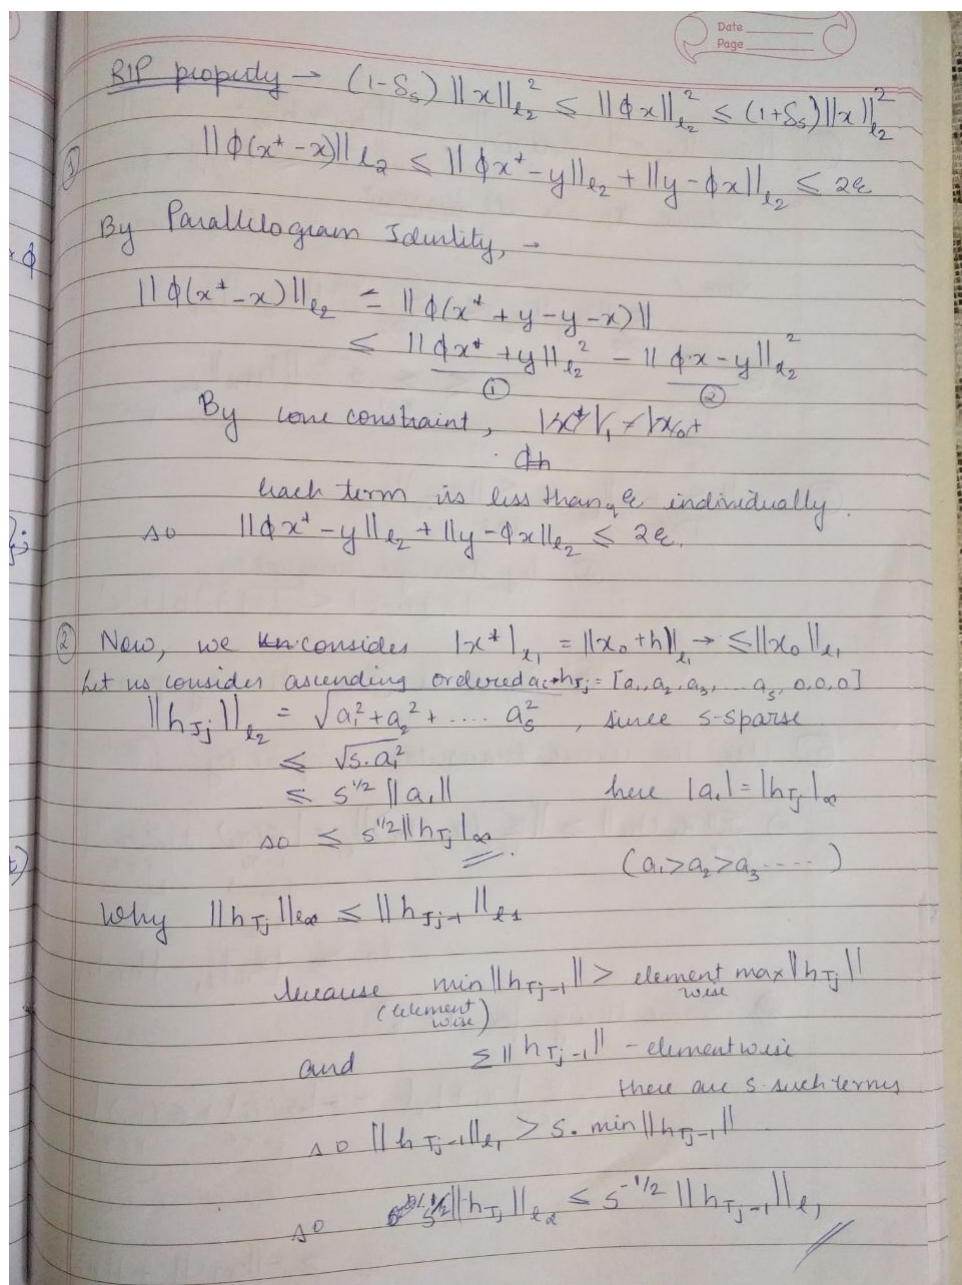 Date
Page
RIP property → (1-δs) ||x||²ℓ2 ≤ ||ϕx||²ℓ2 ≤ (1+δs)||x||²ℓ2
① ||ϕ(x* - x)||ℓ2 ≤ ||ϕx* - y||ℓ2 + ||y - ϕx||ℓ2 ≤ 2ε
By Parallelogram Identity, →
||ϕ(x* - x)||ℓ2 = ||ϕ(x* + y - y - x)||
≤ ||ϕx* + y||²ℓ2 - ||ϕ·x - y||²ℓ2
① ②
By cone constraint,
each term is less than ε individually.
so ||ϕx* - y||ℓ2 + ||y - ϕx||ℓ2 ≤ 2ε.
② Now, we consider |x*|ℓ1 = ||x0 + h||ℓ1 → ≤ ||x0||ℓ1
Let us consider ascending ordered hTj = [a1, a2, a3, ... as, 0,0,0]
||hTj||ℓ2 = √a1² + a2² + .... as² , since s-sparse
≤ √s.a1²
≤ s^1/2 ||a1|| here |a1| = |hTj|∞
so ≤ s^1/2 ||hTj|∞
(a1>a2>a3 ....)
Why ||hTj||ℓ∞ ≤ ||hTj-1||ℓ1
because min||hTj-1|| > element wise max||hTj||
(element wise)
and Σ||hTj-1|| - elementwise
there are s such terms
so ||hTj-1||ℓ1 > s. min||hTj-1||
so s^1/2||hTj||ℓ∞ ≤ s^-1/2 ||hTj-1||ℓ1